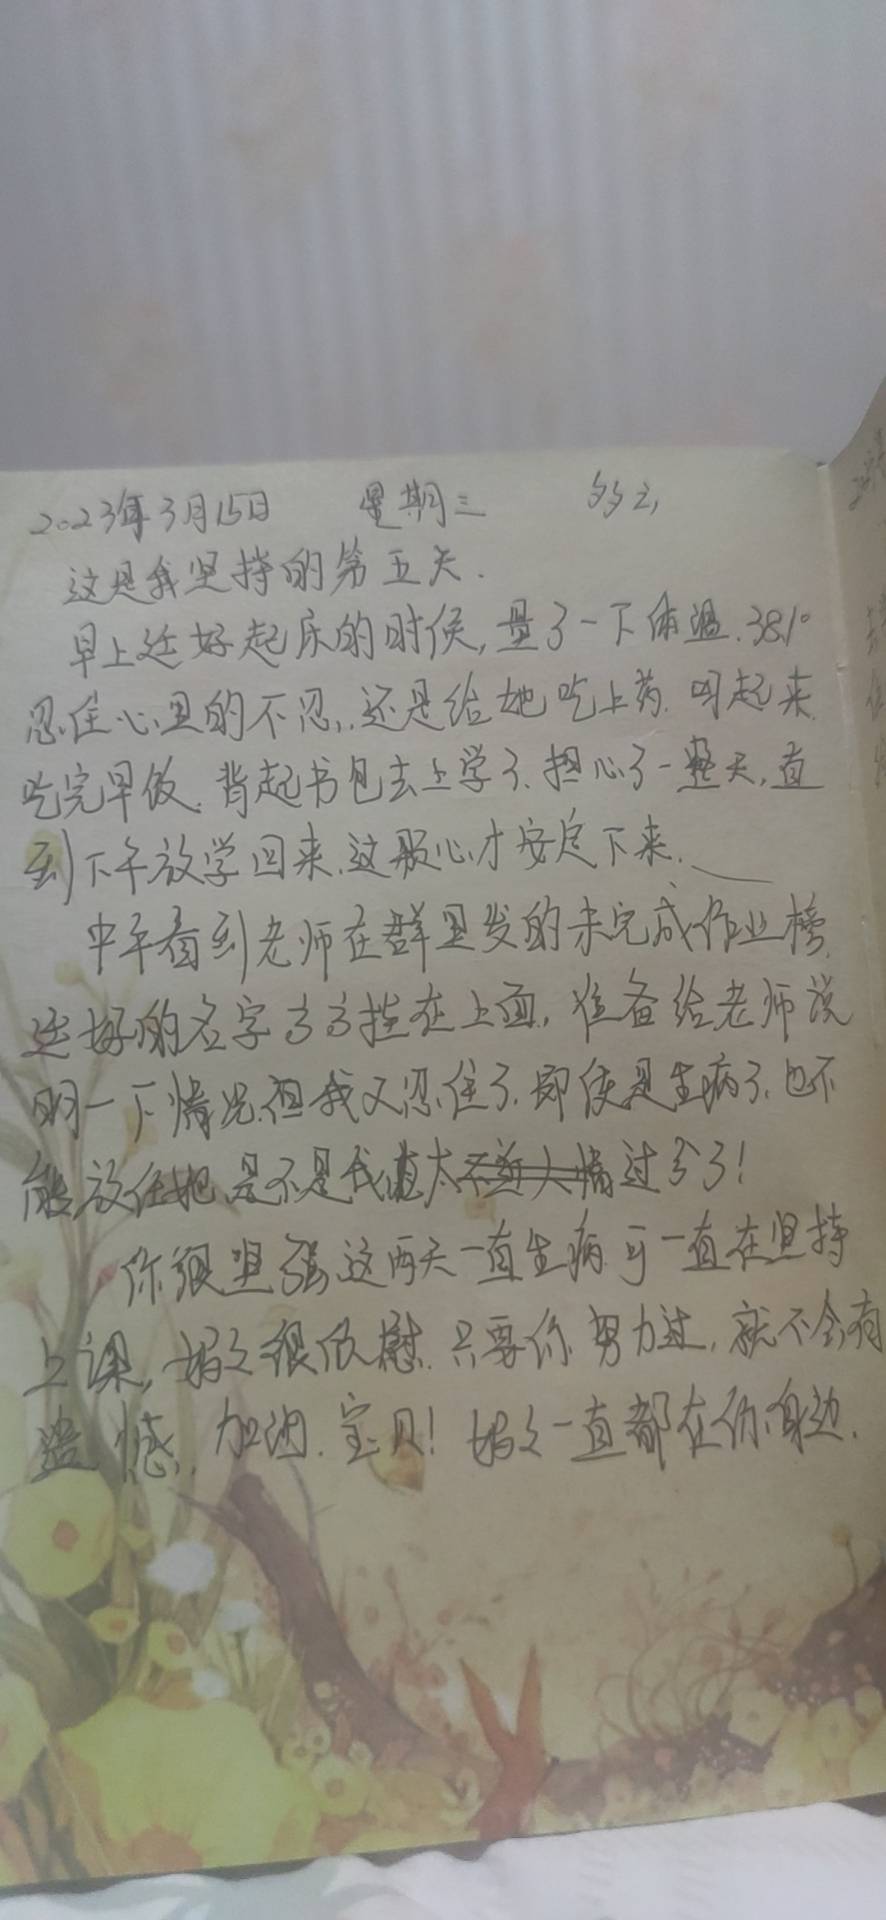 2023年3月15日 星期三 多云
这是我坚持的第五天.
早上廷好起床的时候,量了一下体温.38.1°
忍住心里的不忍,还是给她吃上药.叫起来.
吃完早饭.背起书包去上学了.担心了一整天,直
到下午放学回来.这颗心才安定下来.
中午看到老师在群里发的未完成作业榜.
廷好的名字高高挂在上面,准备给老师说
明一下情况.但我又忍住了.即使是生病了.也不
能放任她 是不是我真太过分了!
你很坚强 这两天一直生病 可一直在坚持
上课,妈妈很欣慰.只要你努力过,就不会有
遗憾.加油.宝贝!妈妈一直都在你身边.